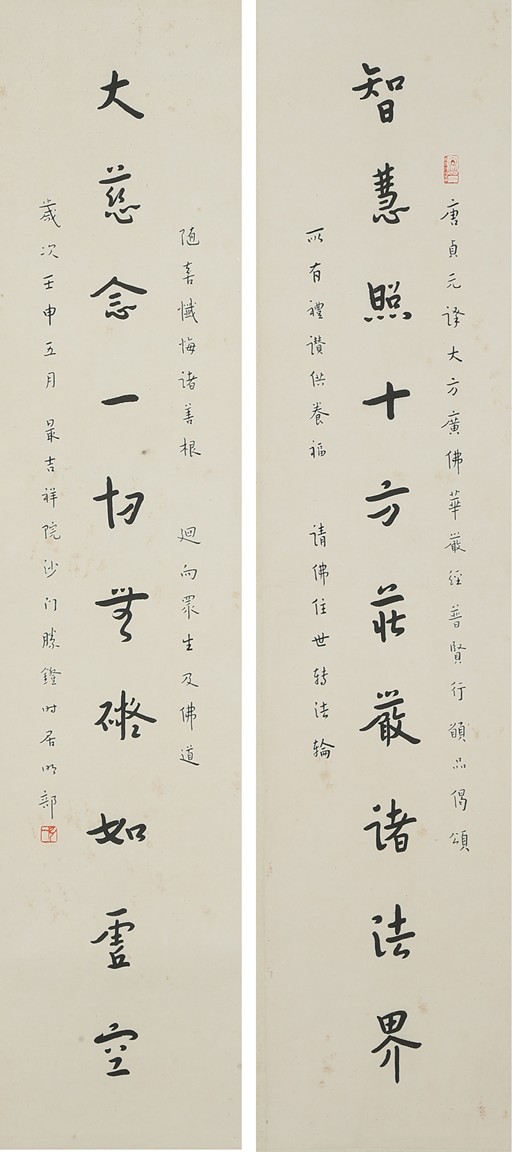 唐貞元譯大方廣佛華嚴經普賢行願品偈頌
智慧照十方莊嚴諸法界
所有禮讚供養福 請佛住世轉法輪
隨喜懺悔諸善根 迴向眾生及佛道
大慈念一切無礙如虛空
歲次壬申五月 最吉祥院沙門勝鐙時居